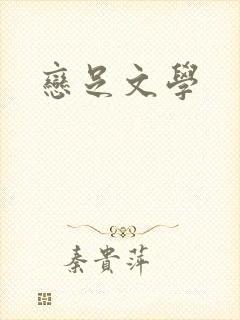 戀足文學
秦貴萍